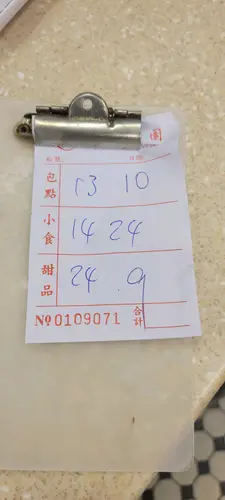 園
包點 13 10
小食 14 24
甜品 24 9
No 0109071 合計